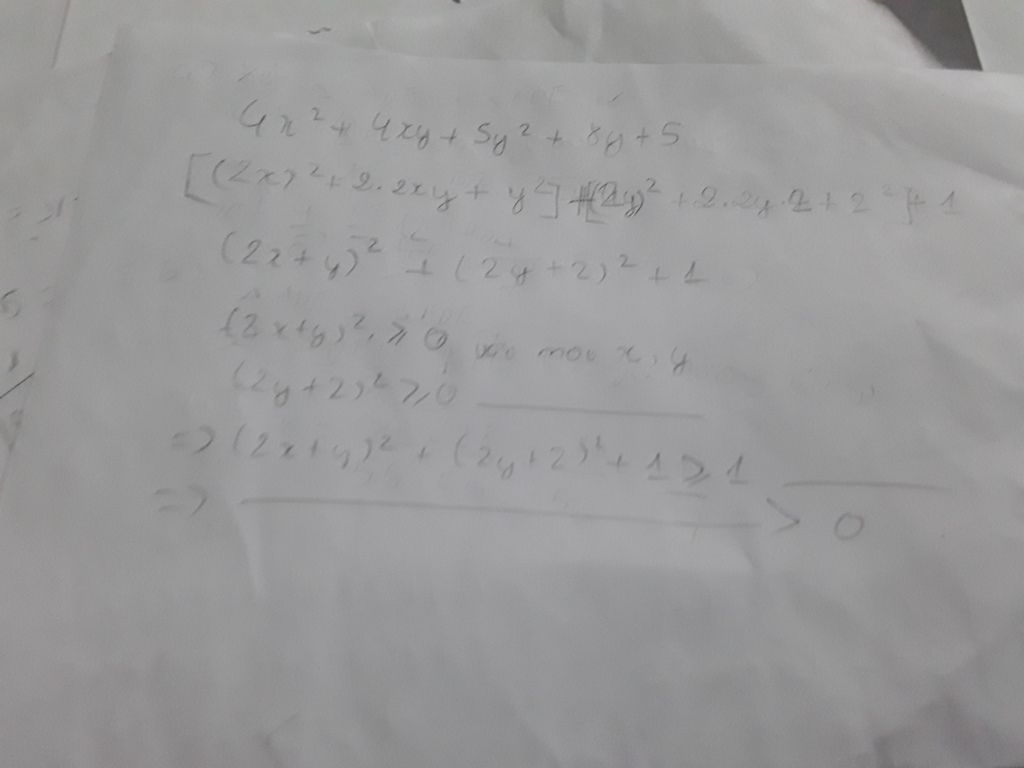 4x² + 4xy + 5y² + 8y + 5
[(2x)² + 2.2xy + y²] + [(2y)² + 2.2y.2 + 2²] + 1
(2x + y)² + (2y + 2)² + 1
(2x + y)² ≥ 0 với mọi x, y
(2y + 2)² ≥ 0
=> (2x + y)² + (2y + 2)² + 1 ≥ 1
=> > 0